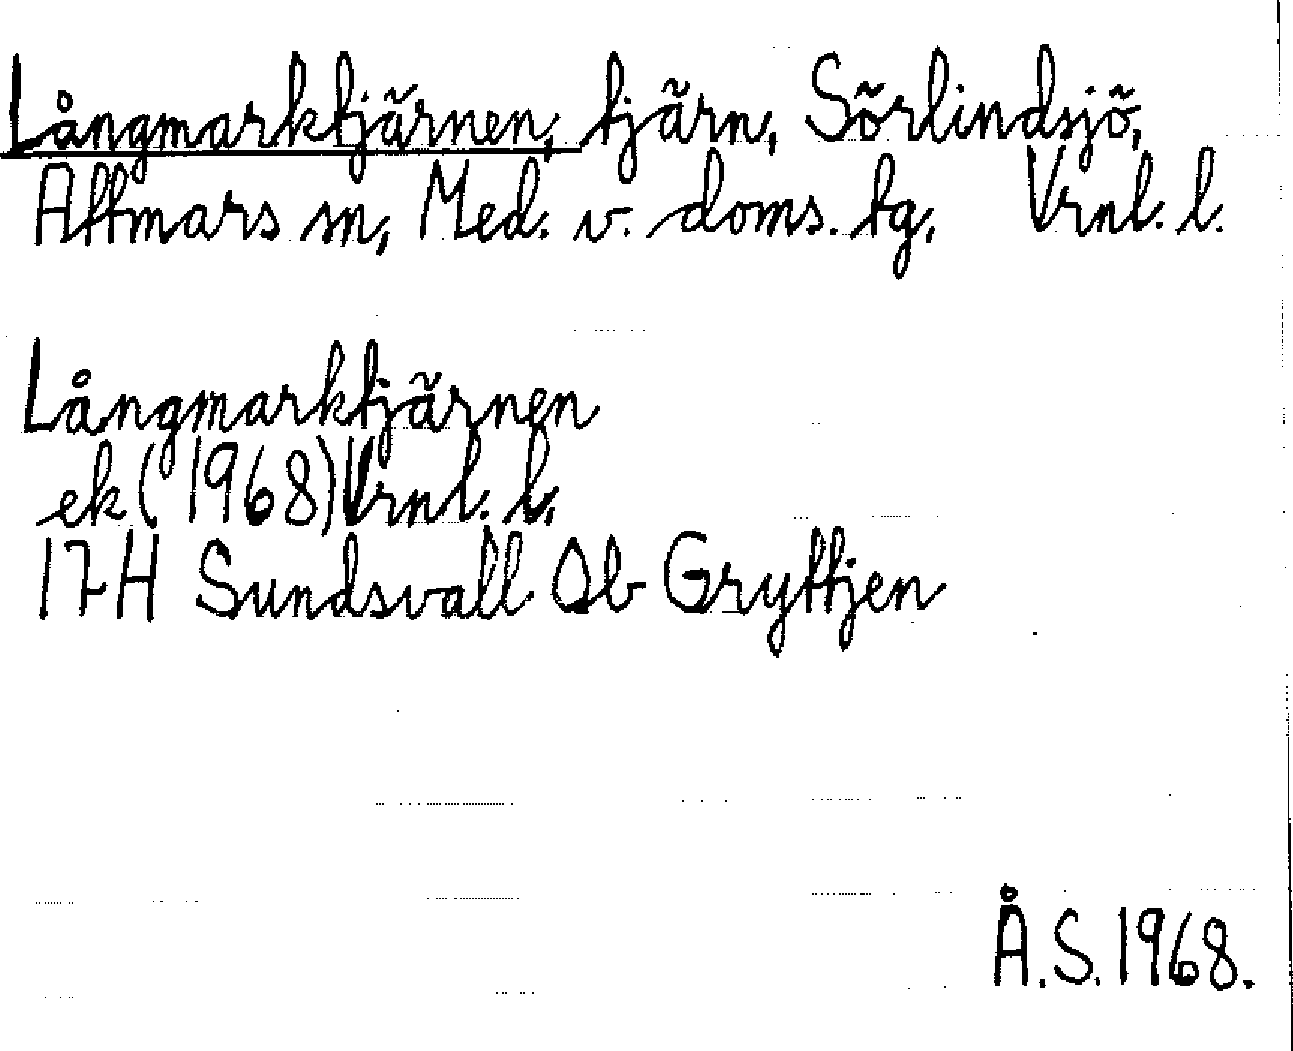 Långmarktjärnen, tjärn, Sörlindsjö,
Attmars sn, Med. v. doms. tg, Vrnl. l.
Långmarktjärnen
ek (1968) Vrnl. l.
17H Sundsvall Ob Gryttjen
Å.S. 1968.